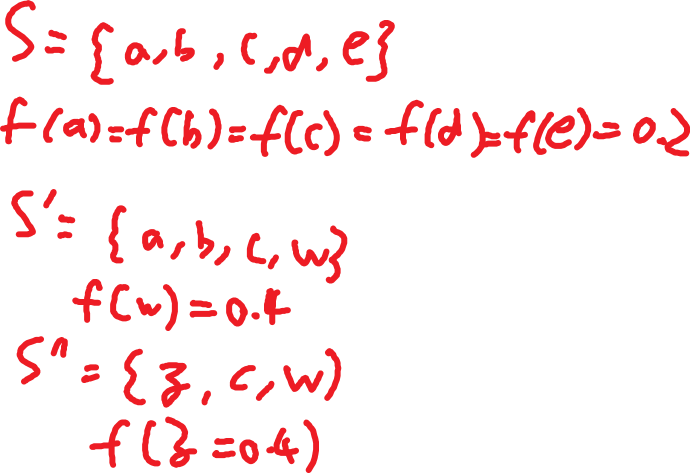 S = {a, b, c, d, e}
f(a) = f(b) = f(c) = f(d) = f(e) = 0.2
S' = {a, b, c, w}
f(w) = 0.4
S" = {z, c, w)
f(z = 0.4)